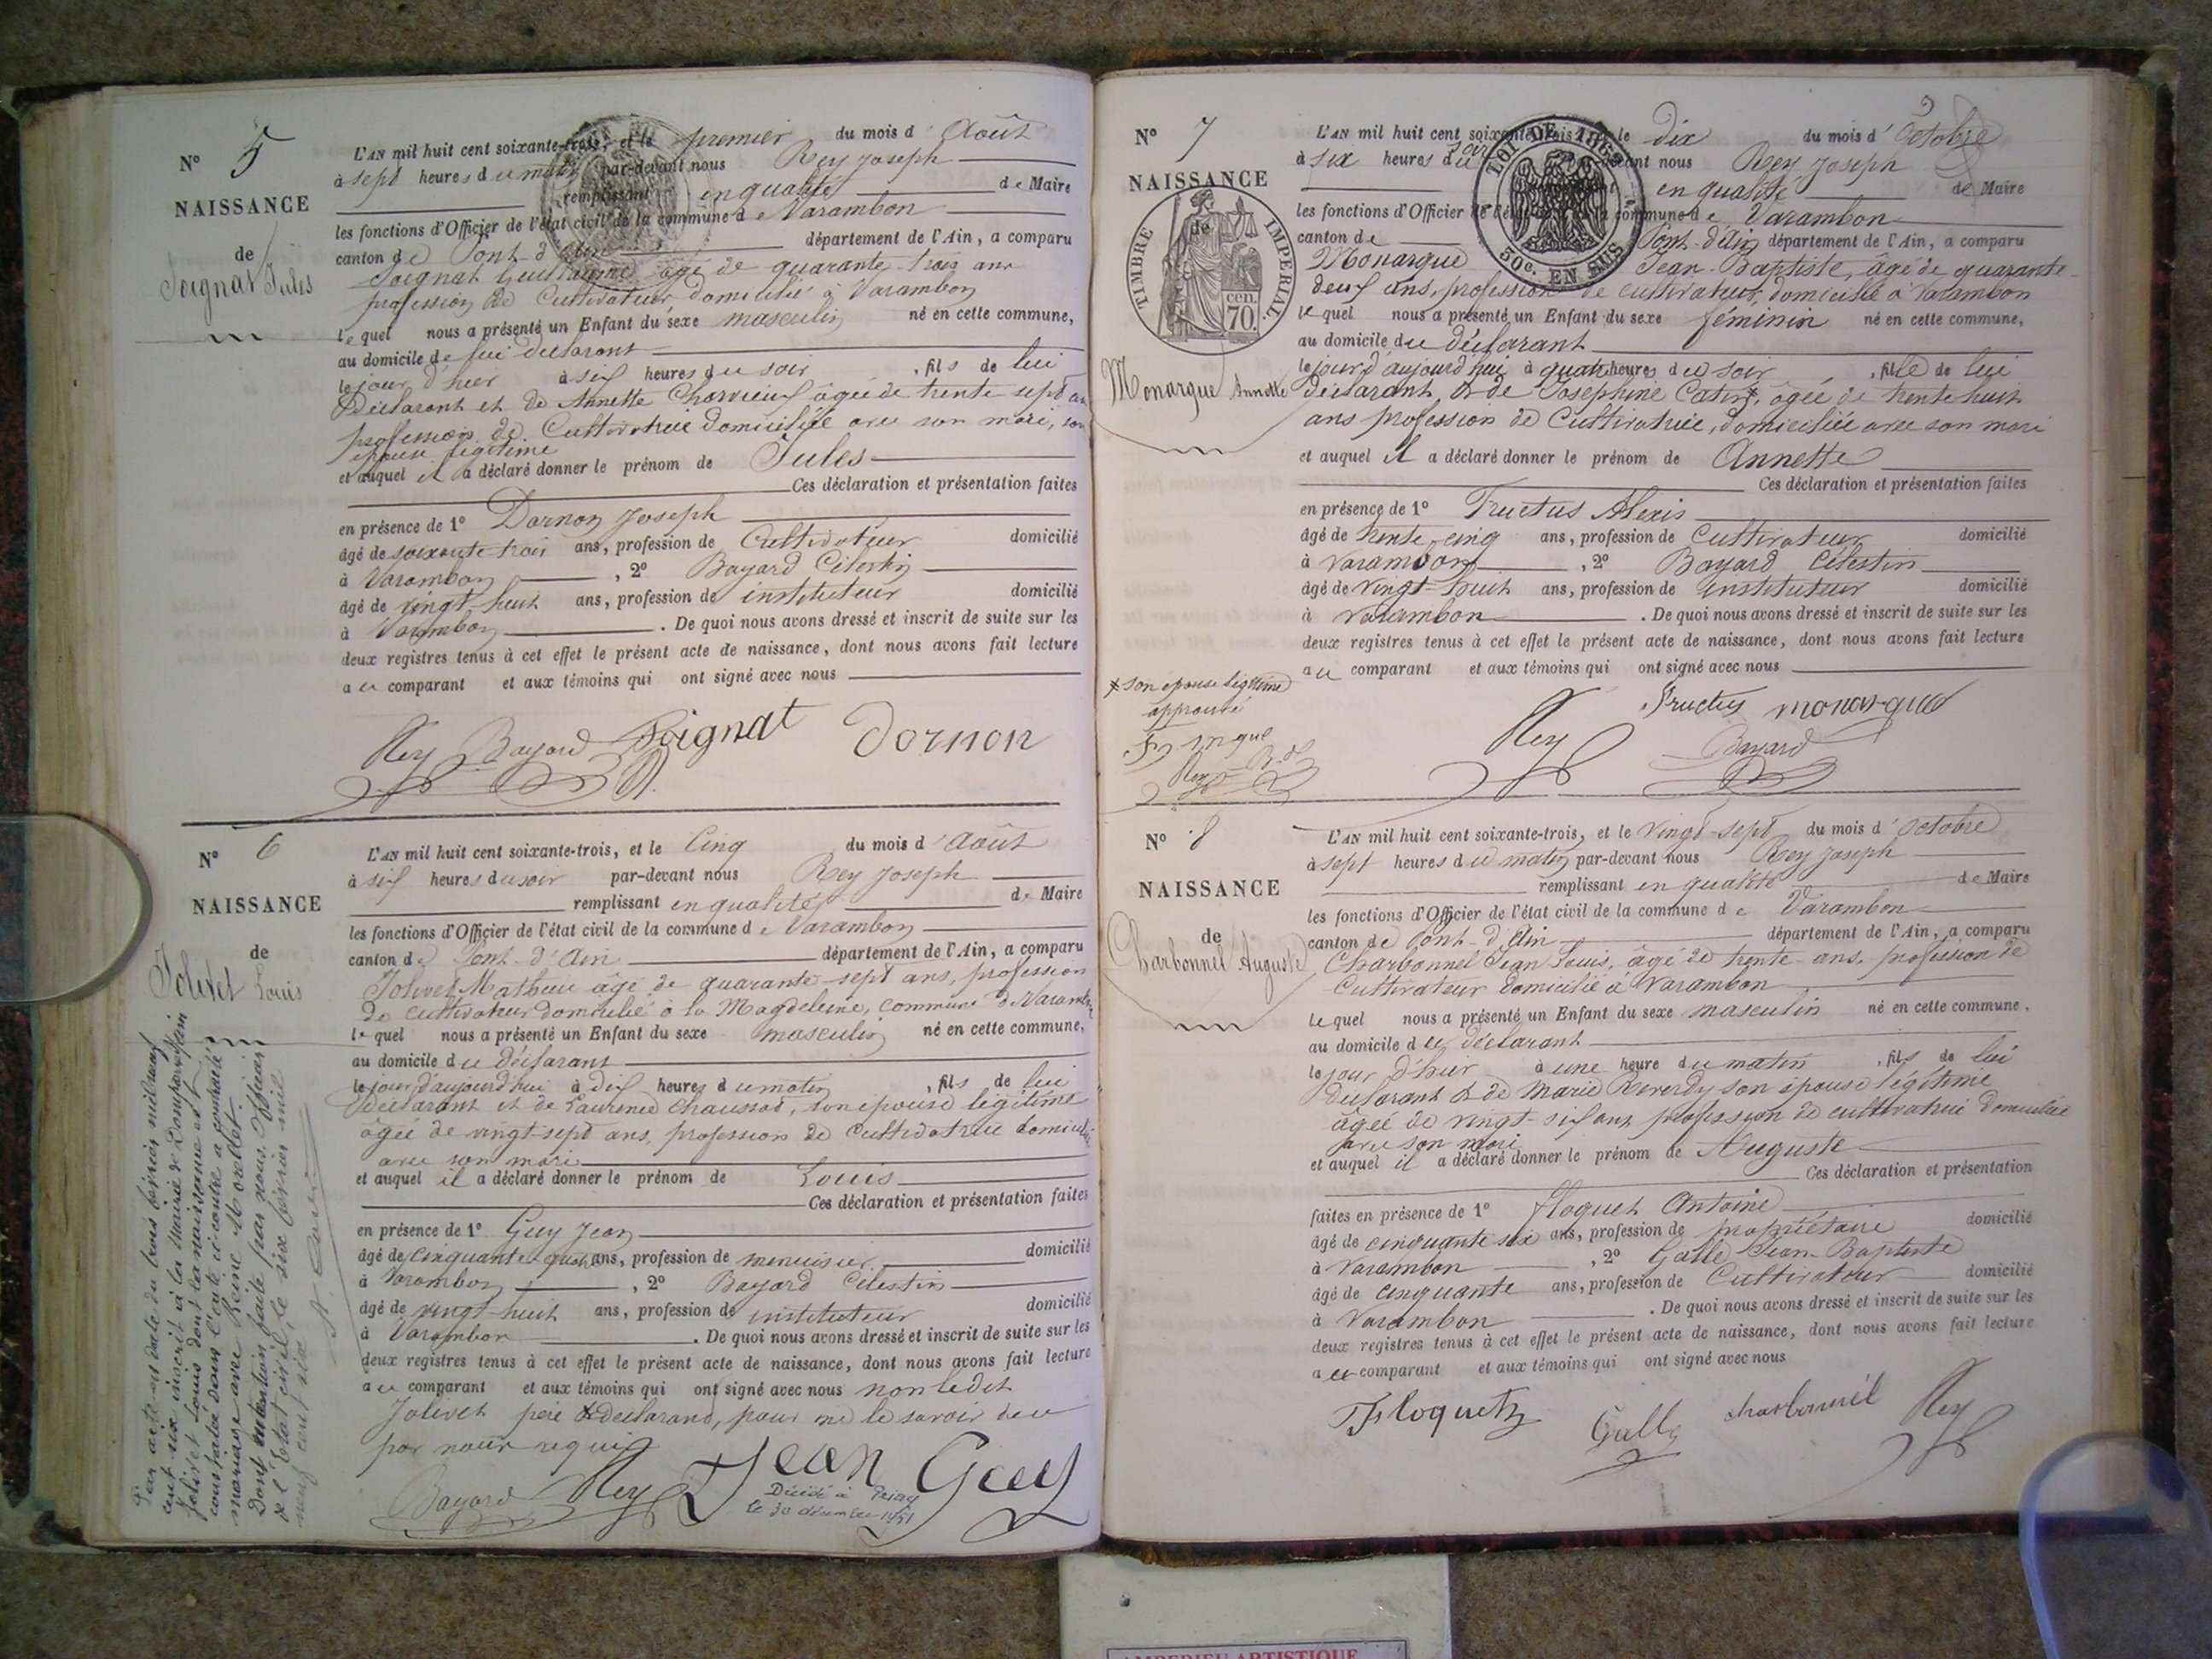 N° 5
NAISSANCE
de
Soignat Jules
L'AN mil huit cent soixante-trois, et le premier du mois d'Août
à sept heures du matin par-devant nous Rey Joseph
remplissant en qualité de Maire
les fonctions d'Officier de l'état civil de la commune de Varambon
canton de Pont-d'Ain département de l'Ain, a comparu
Soignat Guillaume âgé de quarante-trois ans
profession de Cultivateur domicilié à Varambon
lequel nous a présenté un Enfant du sexe masculin né en cette commune,
au domicile de lui déclarant
le jour d'hier à six heures du soir, fils de lui
Déclarant et de Annette Charvieux âgée de trente sept ans
profession de Cultivatrice domiciliée avec son mari, son
épouse légitime
et auquel il a déclaré donner le prénom de Jules
Ces déclaration et présentation faites
en présence de 1° Dornon Joseph
âgé de soixante trois ans, profession de Cultivateur domicilié
à Varambon, 2° Bayard Célestin
âgé de vingt-huit ans, profession de instituteur domicilié
à Varambon. De quoi nous avons dressé et inscrit de suite sur les
deux registres tenus à cet effet le présent acte de naissance, dont nous avons fait lecture
au comparant et aux témoins qui ont signé avec nous
Rey Bayard Soignat Dornon
N° 6
NAISSANCE
de
Jolivet Louis
L'AN mil huit cent soixante-trois, et le Cinq du mois d'Août
à six heures du soir par-devant nous Rey Joseph
remplissant en qualité de Maire
les fonctions d'Officier de l'état civil de la commune de Varambon
canton de Pont-d'Ain département de l'Ain, a comparu
Jolivet Mathieu âgé de quarante-sept ans, profession
de cultivateur domicilié à la Magdeleine, commune de Varambon
lequel nous a présenté un Enfant du sexe masculin né en cette commune,
au domicile du déclarant
le jour d'aujourd'hui à dix heures du matin, fils de lui
Déclarant et de Laurence Chaussat, son épouse légitime
âgée de vingt-sept ans, profession de Cultivatrice domiciliée
avec son mari
et auquel il a déclaré donner le prénom de Louis
Ces déclaration et présentation faites
en présence de 1° Guy Jean
âgé de cinquante-quatre ans, profession de menuisier domicilié
à Varambon, 2° Bayard Célestin
âgé de vingt-huit ans, profession de instituteur domicilié
à Varambon. De quoi nous avons dressé et inscrit de suite sur les
deux registres tenus à cet effet le présent acte de naissance, dont nous avons fait lecture
au comparant et aux témoins qui ont signé avec nous non ledit
Jolivet père déclarant, pour ne le savoir de ce
par nous requis
Bayard Rey Jean Guy
Décédé à
le 30 décembre
Par acte en date du trois février mil neuf
cent six inscrit à la Mairie de
Jolivet Louis dont la naissance est
constatée dans l'acte ci-contre a contracté
mariage avec Reine Morellet.
Dont mention faite par nous, Officier
de l'Etat civil, le six février mil
neuf cent six
N° 7
NAISSANCE
de
TIMBRE IMPERIAL
70 cen.
LOI DE 1862
50c. EN SUS
Monarque Annette
L'AN mil huit cent soixante-trois, et le dix du mois d'Octobre
à six heures du soir par-devant nous Rey Joseph
en qualité de Maire
les fonctions d'Officier de l'état civil de la commune de Varambon
canton de Pont-d'Ain département de l'Ain, a comparu
Monarque Jean-Baptiste, âgé de quarante
deux ans, profession de cultivateur, domicilié à Varambon
lequel nous a présenté un Enfant du sexe féminin né en cette commune,
au domicile du déclarant
le jour d'aujourd'hui à quatre heures du soir, fille de lui
déclarant, et de Joséphine Catin*, âgée de trente huit
ans profession de Cultivatrice, domiciliée avec son mari
et auquel il a déclaré donner le prénom de Annette
Ces déclaration et présentation faites
en présence de 1° Fructus Alexis
âgé de trente-cinq ans, profession de Cultivateur domicilié
à Varambon, 2° Bayard Célestin
âgé de vingt-huit ans, profession de instituteur domicilié
à Varambon. De quoi nous avons dressé et inscrit de suite sur les
deux registres tenus à cet effet le présent acte de naissance, dont nous avons fait lecture
au comparant et aux témoins qui ont signé avec nous
* son épouse légitime
approuvé
Rey
Fructus monarque
Rey Bayard
N° 8
NAISSANCE
de
Charbonnel Auguste
L'AN mil huit cent soixante-trois, et le Vingt-sept du mois d'Octobre
à sept heures du matin par-devant nous Rey Joseph
remplissant en qualité de Maire
les fonctions d'Officier de l'état civil de la commune de Varambon
canton de Pont-d'Ain département de l'Ain, a comparu
Charbonnel Jean Louis, âgé de trente ans, profession de
Cultivateur domicilié à Varambon
lequel nous a présenté un Enfant du sexe masculin né en cette commune,
au domicile du déclarant
le jour d'hier à une heure du matin, fils de lui
déclarant et de Marie Reverdy son épouse légitime
âgée de vingt-six ans profession de cultivatrice domiciliée
avec son mari
et auquel il a déclaré donner le prénom de Auguste
Ces déclaration et présentation
faites en présence de 1° Floquet Antoine
âgé de cinquante six ans, profession de propriétaire domicilié
à Varambon, 2° Galle Jean-Baptiste
âgé de cinquante ans, profession de Cultivateur domicilié
à Varambon. De quoi nous avons dressé et inscrit de suite sur les
deux registres tenus à cet effet le présent acte de naissance, dont nous avons fait lecture
au comparant et aux témoins qui ont signé avec nous
Floquet Galle charbonnel Rey
AMBERIEU ARTISTIQUE